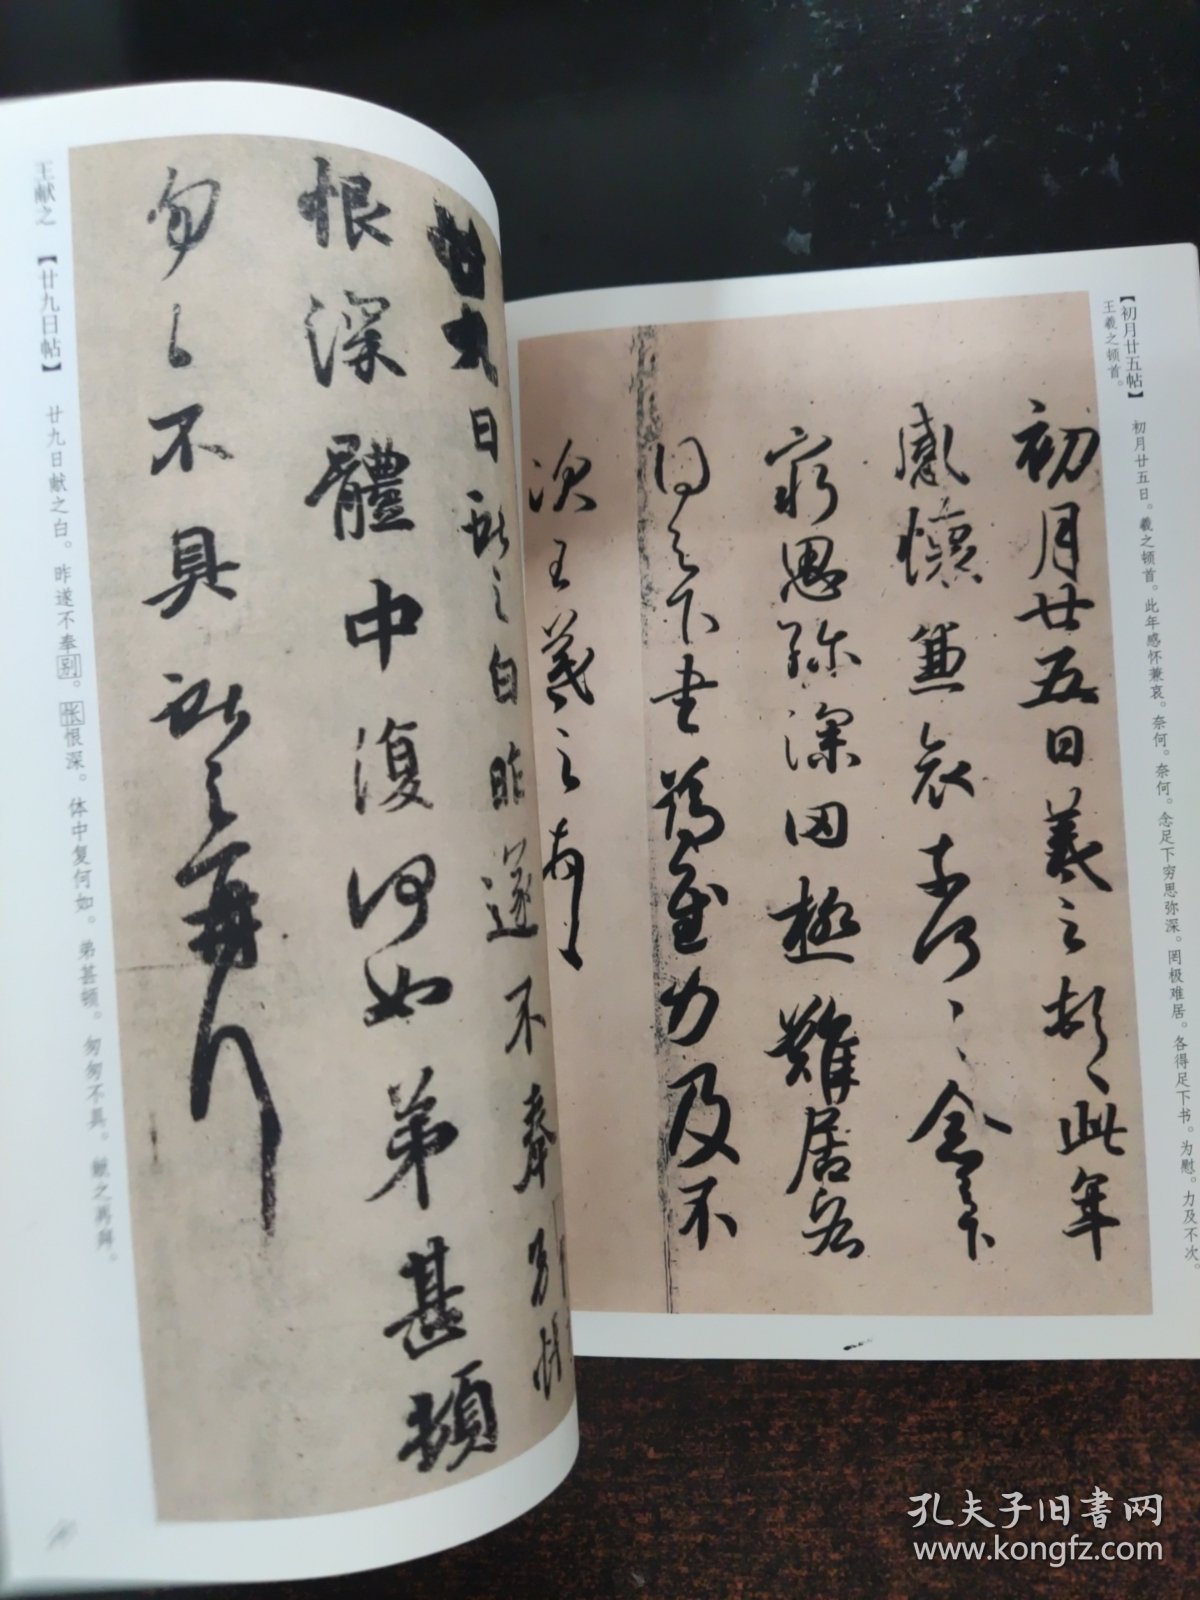 【初月廿五帖】 初月廿五日。羲之顿首。此年感怀兼哀。奈何。奈何。念足下穷思弥深。罔极难居。各得足下书。为慰。力及不次。
王羲之顿首。
初月廿五日羲之頓〻此年
感懷兼哀奈何〻〻念足下
窮思弥深罔極難居各
得足下書為慰力及不
次王羲之頓首
王献之 【廿九日帖】 廿九日献之白。昨遂不奉别。怅恨深。体中复何如。弟甚顿。匆匆不具。献之再拜。
廿九日獻之白昨遂不奉
恨深體中復何如弟甚頓
匆〻不具獻之再拜
孔夫子旧书网
www.kongfz.com